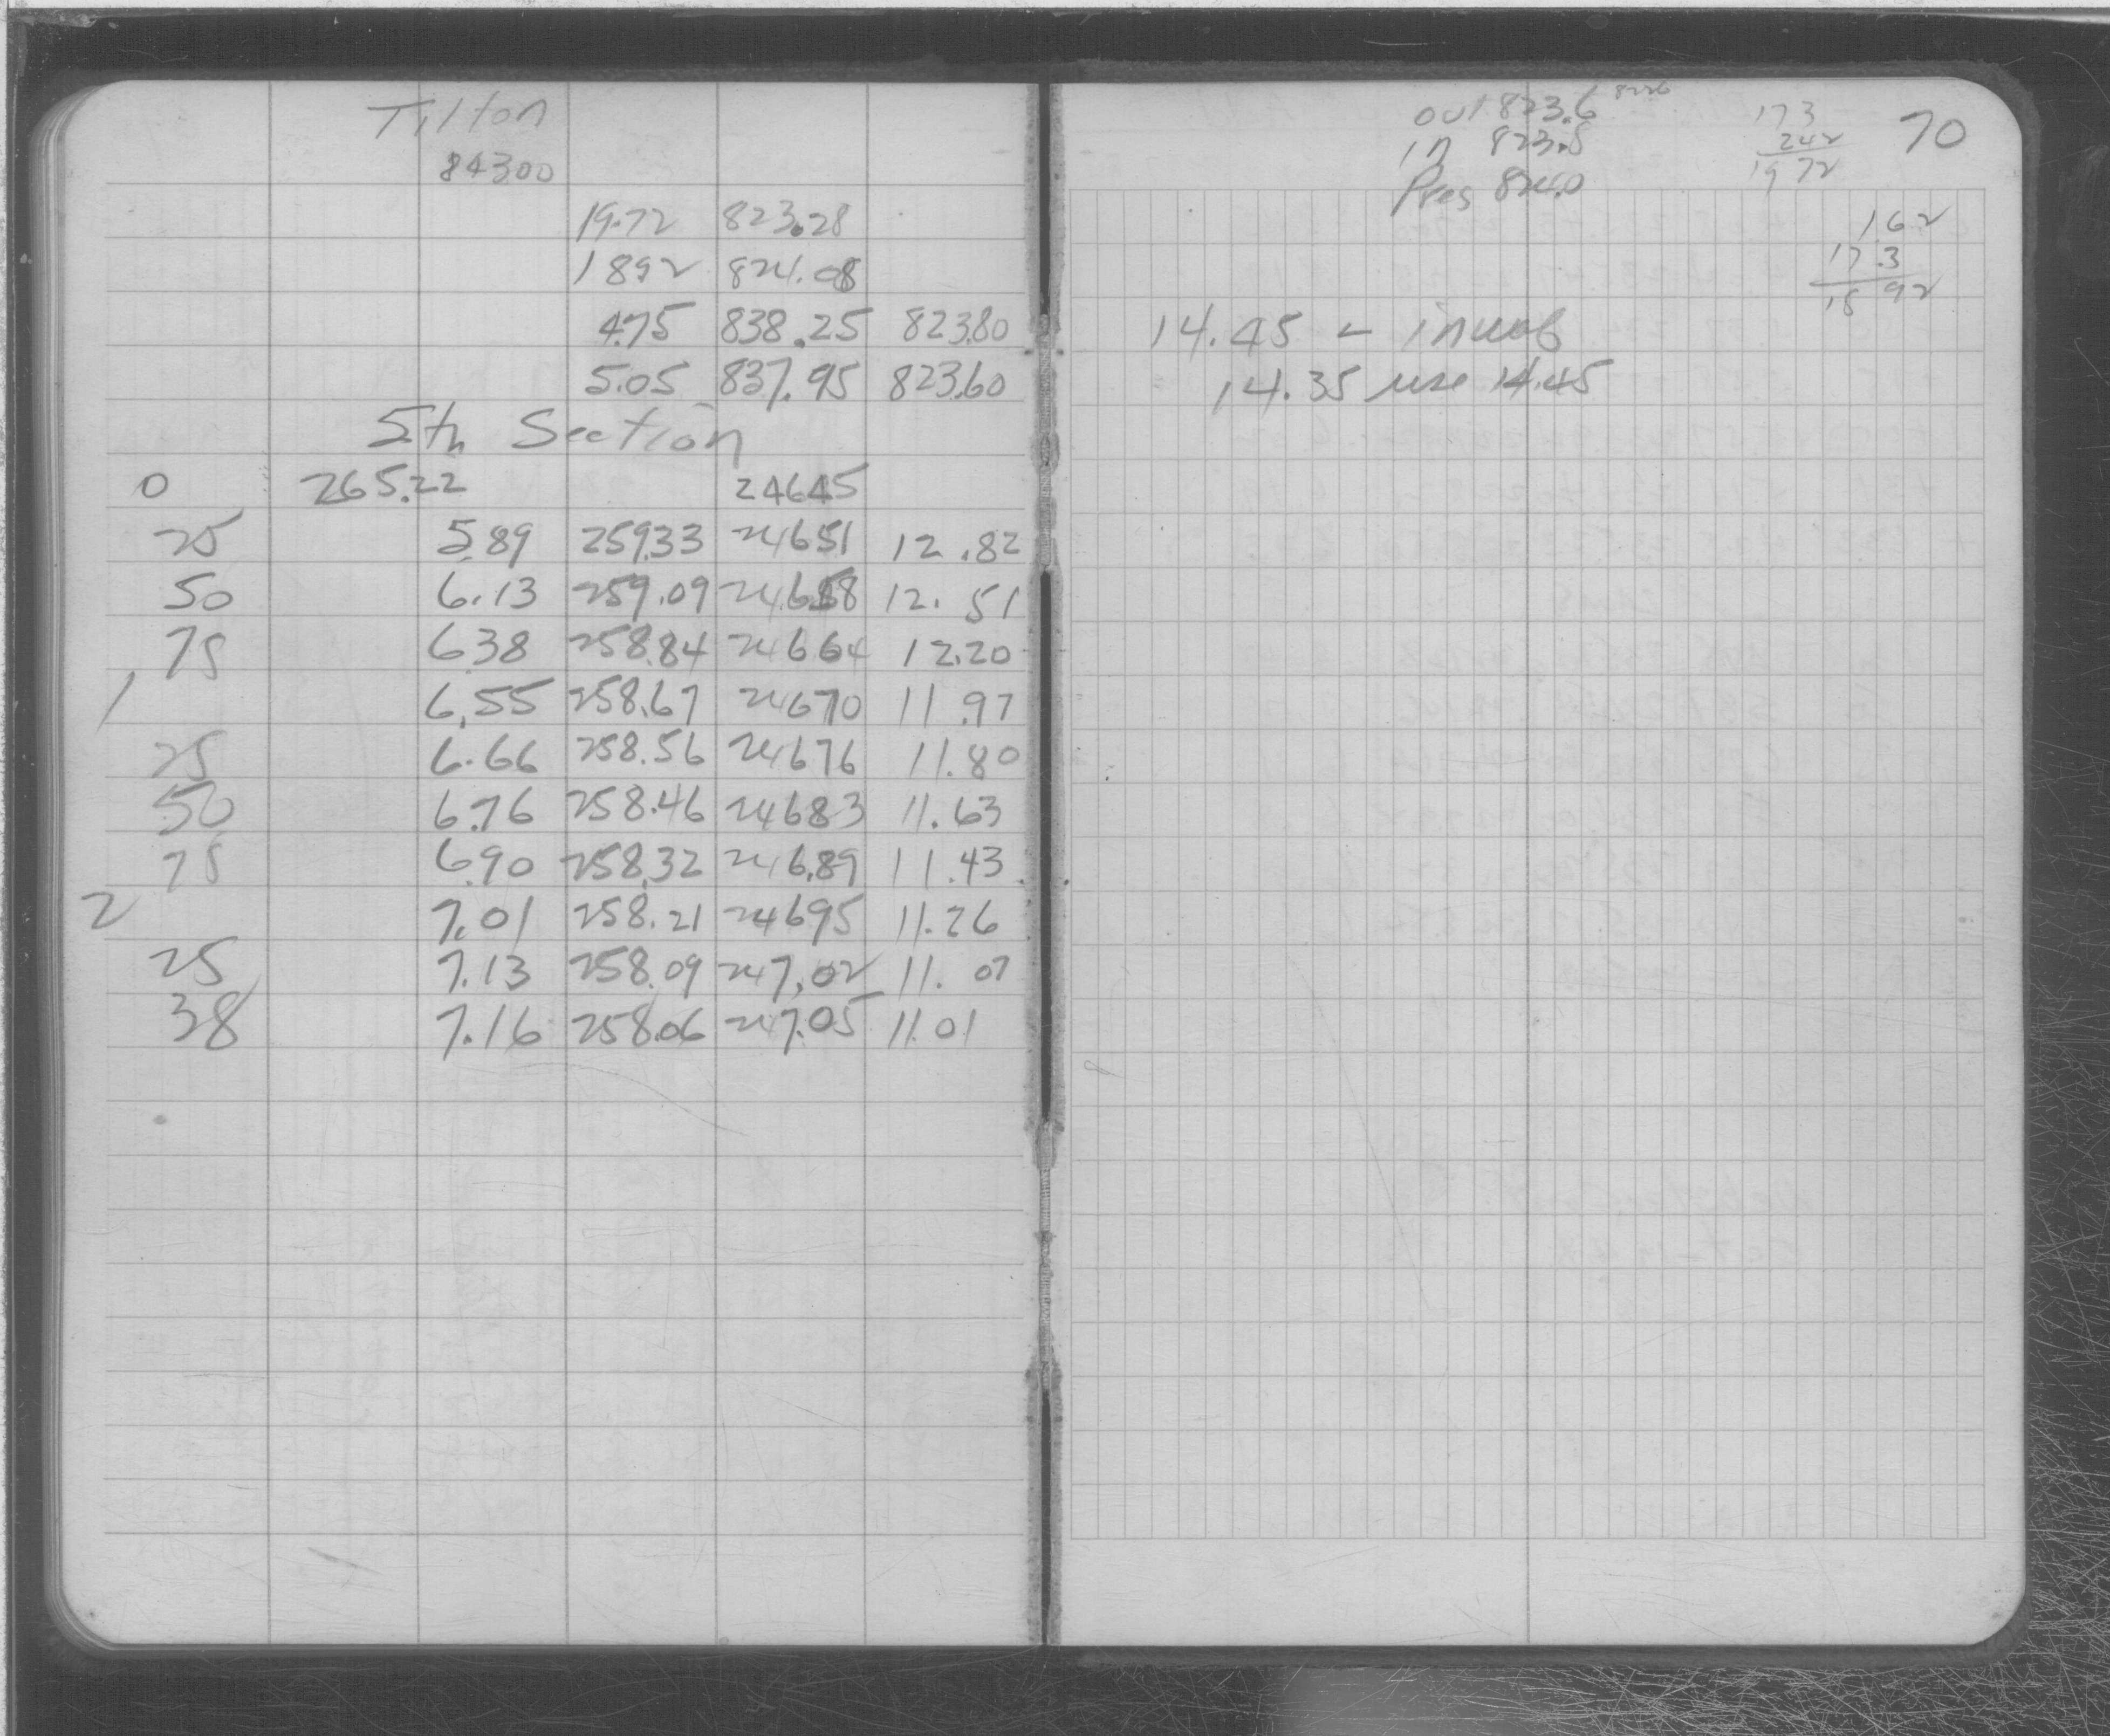 Tilton
84300
19.72 823.28
1892 824.08
4.75 838.25 823.80
5.05 837.95 823.60
5th Section
0 265.22 24645
25 5.89 259.33 24651 12.82
50 6.13 259.09 24658 12.51
75 6.38 258.84 24664 12.20
1 6.55 258.67 24670 11.97
25 6.66 258.56 24676 11.80
50 6.76 258.46 24683 11.63
75 6.90 258.32 246.89 11.43
2 7.01 258.21 24695 11.26
25 7.13 258.09 247.02 11.07
38 7.16 258.06 247.05 11.01
out 823.6 8226
in 823.8
Pres 824.0
173
242
1972
70
162
17.3
18 92
14.45 -
14.35 use 14.45